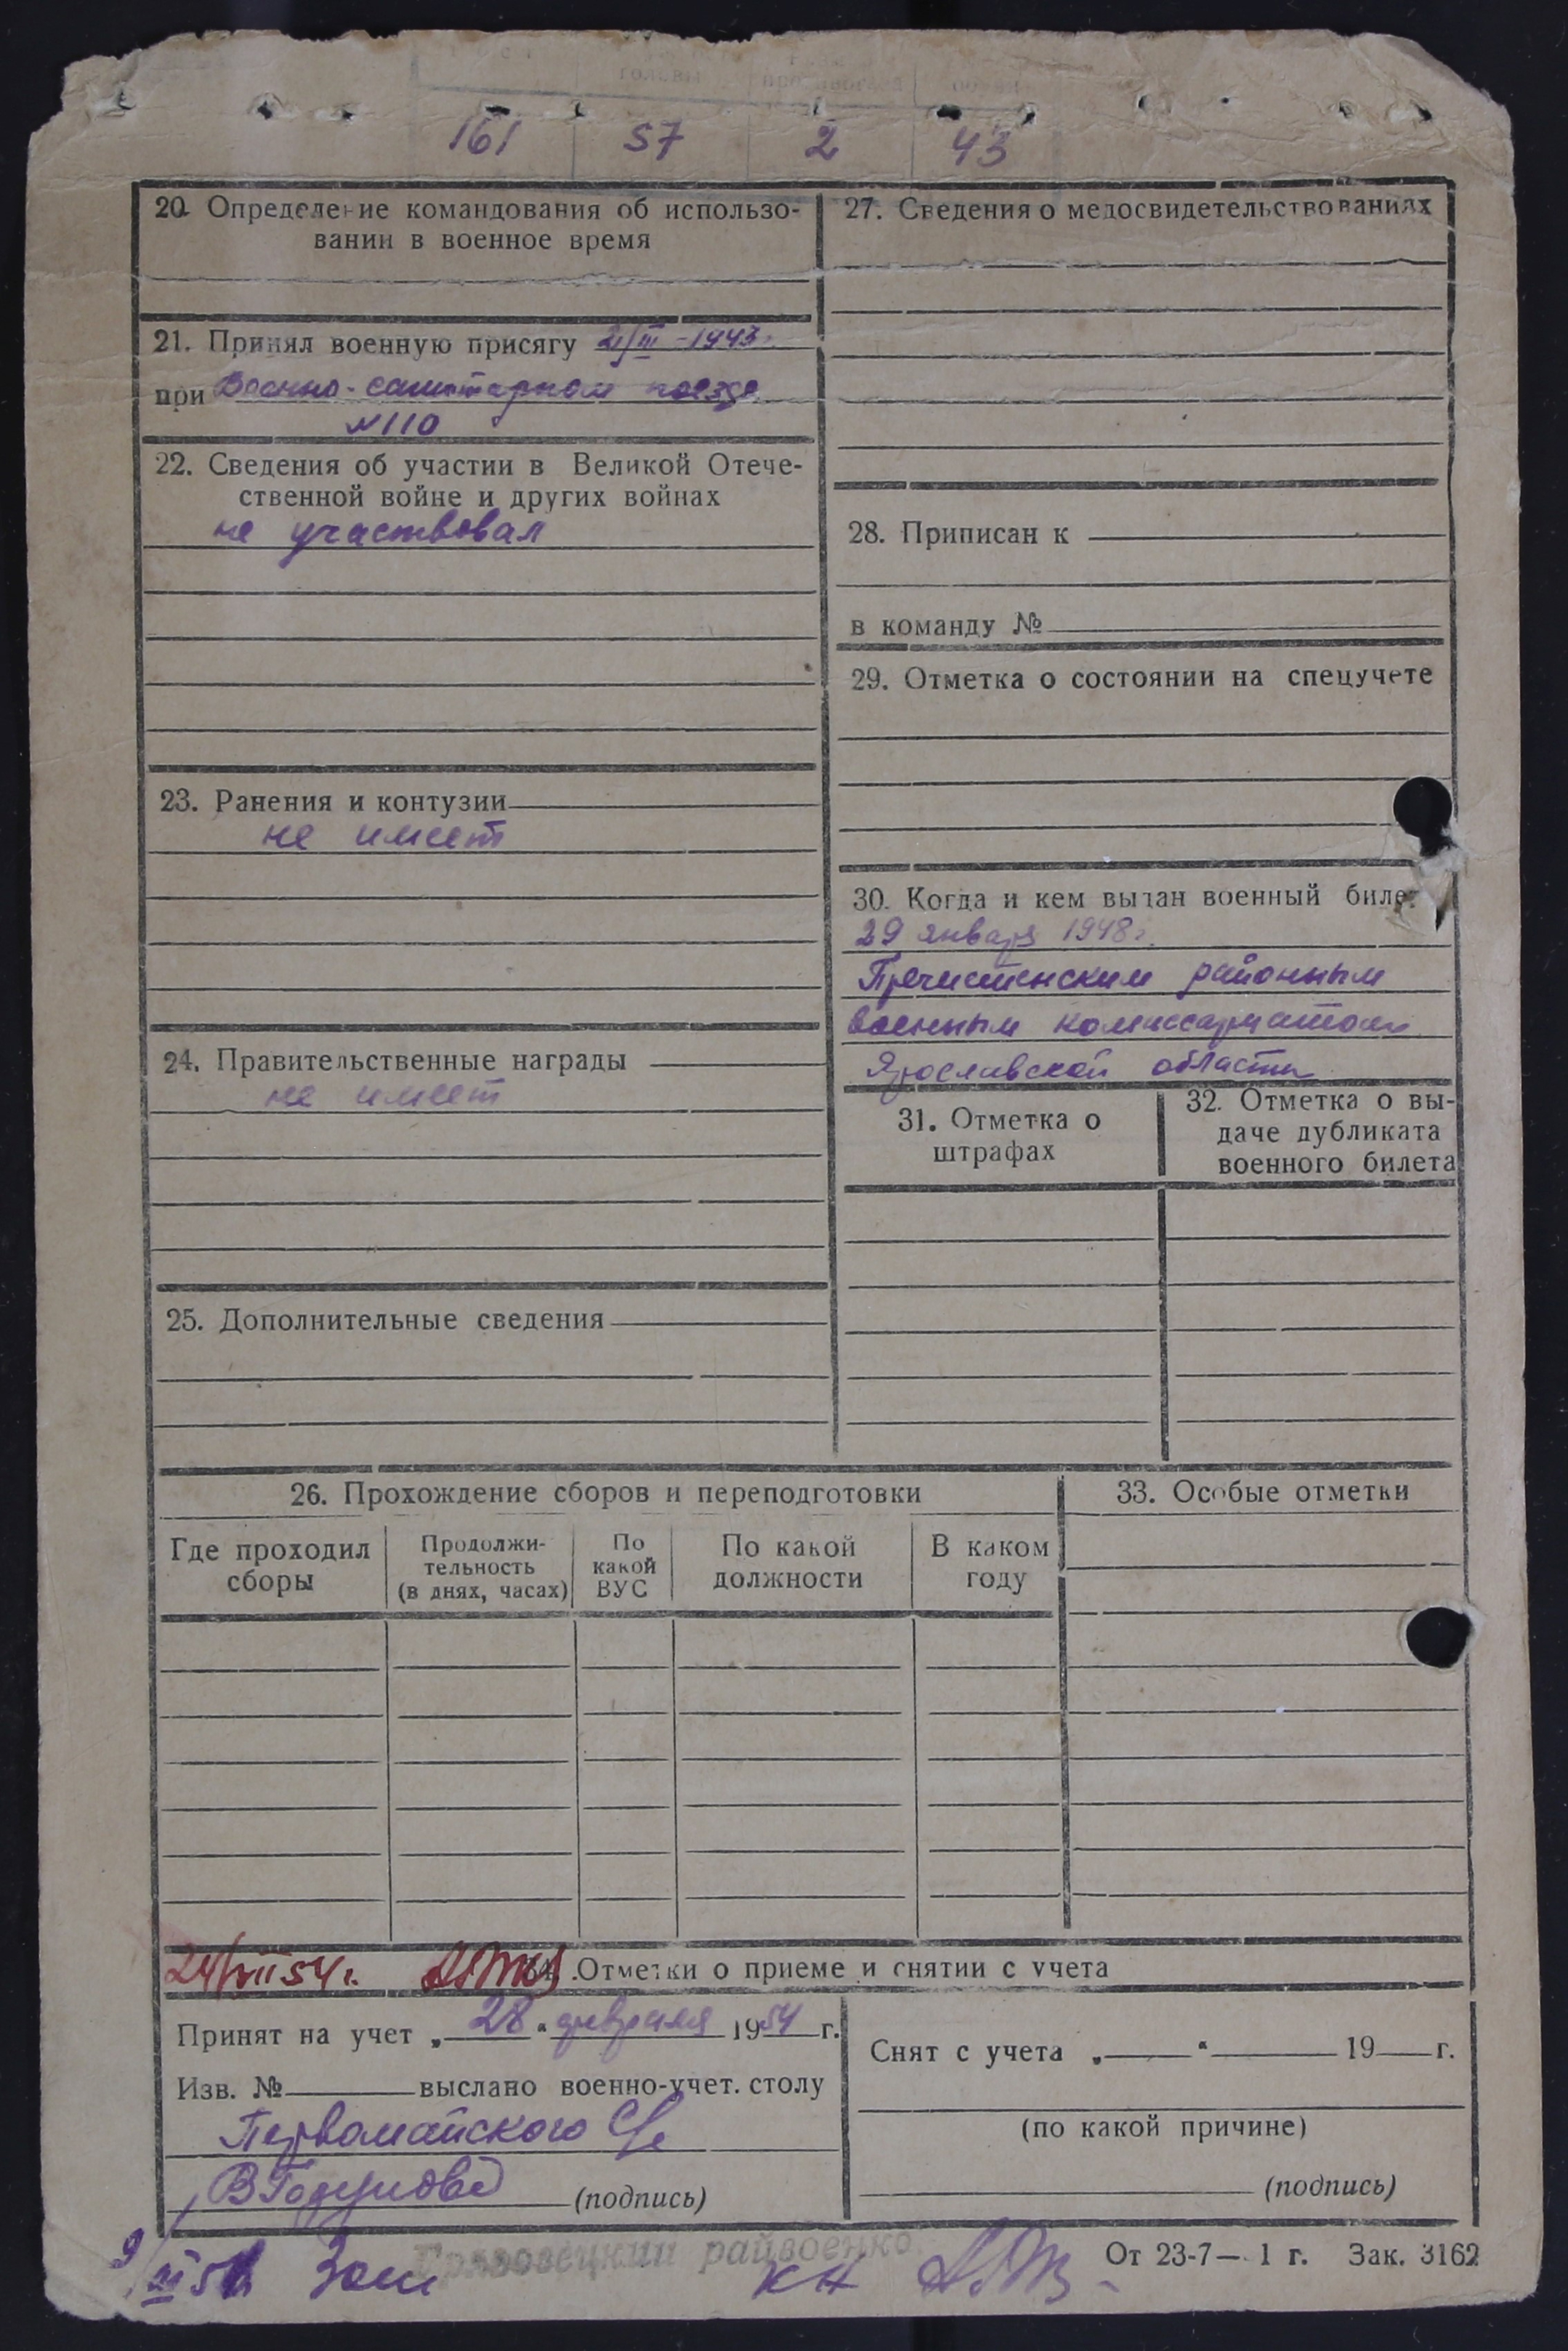 161 57 2 43
20. Определение командования об использо-
вании в военное время
21. Принял военную присягу 21/III-1943г.
при Военно-санитарном поезде
№110
22. Сведения об участии в Великой Отече-
ственной войне и других войнах
не участвовал
23. Ранения и контузии
не имеет
24. Правительственные награды
не имеет
25. Дополнительные сведения
27. Сведения о медосвидетельствованиях
28. Приписан к
в команду №
29. Отметка о состоянии на спецучете
30. Когда и кем выдан военный билет
29 января 1948г.
Пречистенским районным
военным комиссариатом
Ярославской области
31. Отметка о
штрафах
32. Отметка о вы-
даче дубликата
военного билета
26. Прохождение сборов и переподготовки
Где проходил
сборы
Продолжи-
тельность
(в днях, часах)
По
какой
ВУС
По какой
должности
В каком
году
33. Особые отметки
24/VII 54 г. Отметки о приеме и снятии с учета
Принят на учет „28“ февраля 1954 г.
Изв. № выслано военно-учет. столу
Первомайского С/с
(подпись)
Снят с учета „ “ 19 г.
(по какой причине)
(подпись)
райвоенко
От 23-7— 1 г. Зак. 3162